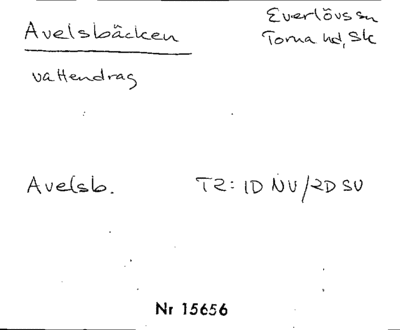 Avelsbäcken
Everlövs sn
Torna hd, Sk
vattendrag
Avelsb. T2: 1D NV/2D SV
Nr 15656